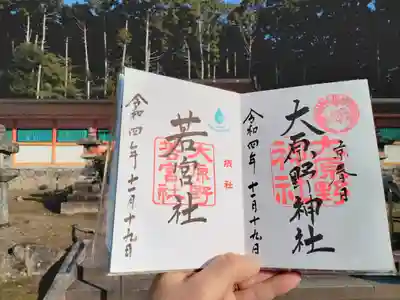 京春日
大原野神社
大原野神社
令和四年 十二月十九日
摂社
若宮社
大原野若宮社
令和四年 十二月十九日